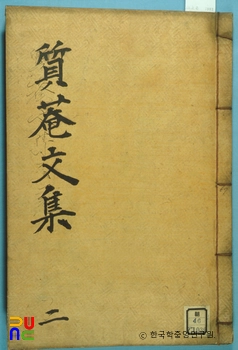 質菴文集
二
PUNE
© 한국학중앙연구원